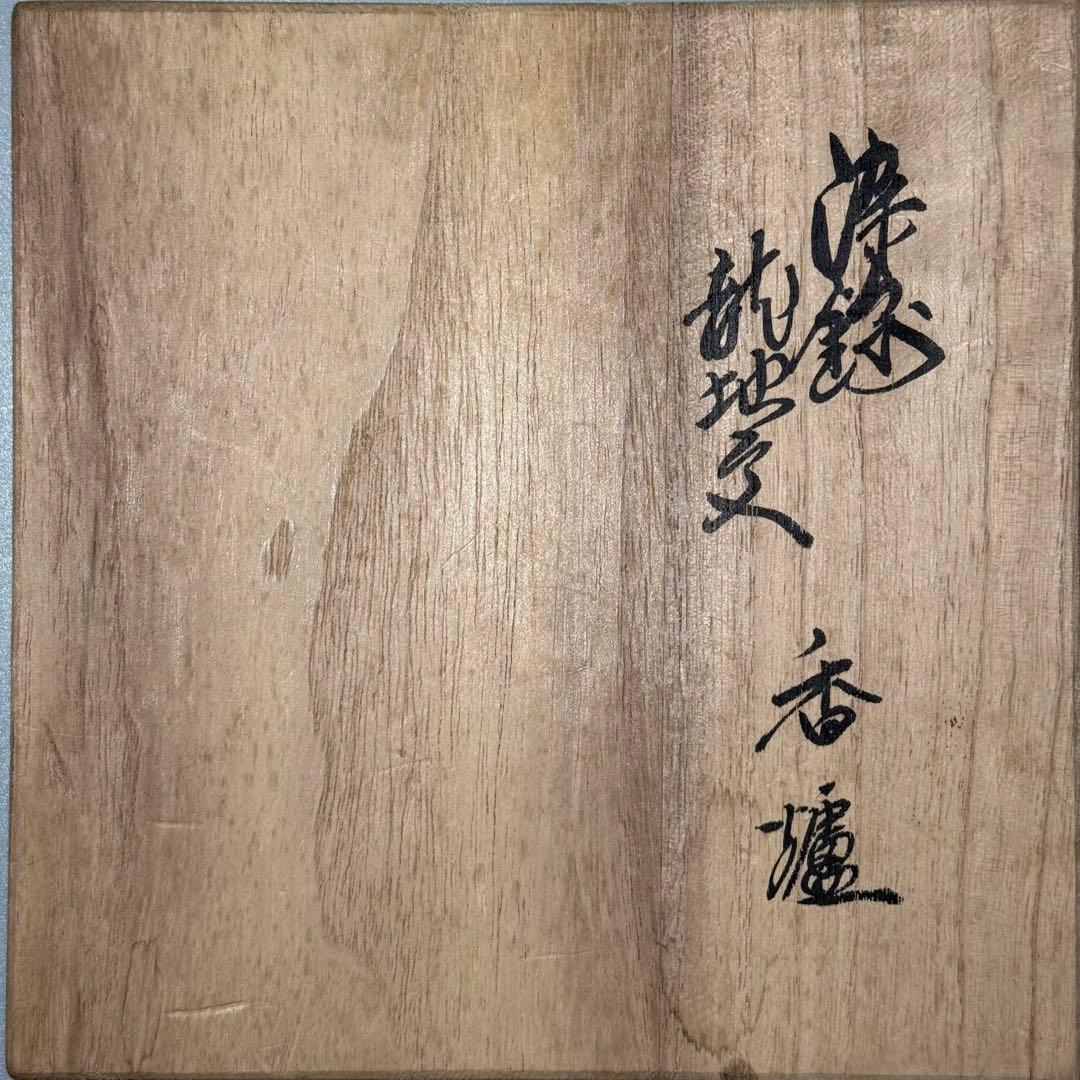 染錦
龍地文
香爐